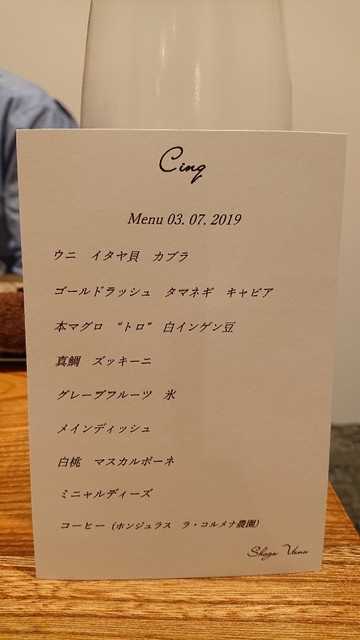 Cinq
Menu 03. 07. 2019
ウニ　イタヤ貝　カブラ
ゴールドラッシュ　タマネギ　キャビア
本マグロ　“トロ”　白インゲン豆
真鯛　ズッキーニ
グレープフルーツ　氷
メインディッシュ
白桃　マスカルポーネ
ミニャルディーズ
コーヒー（ホンジュラス　ラ・コルメナ農園）